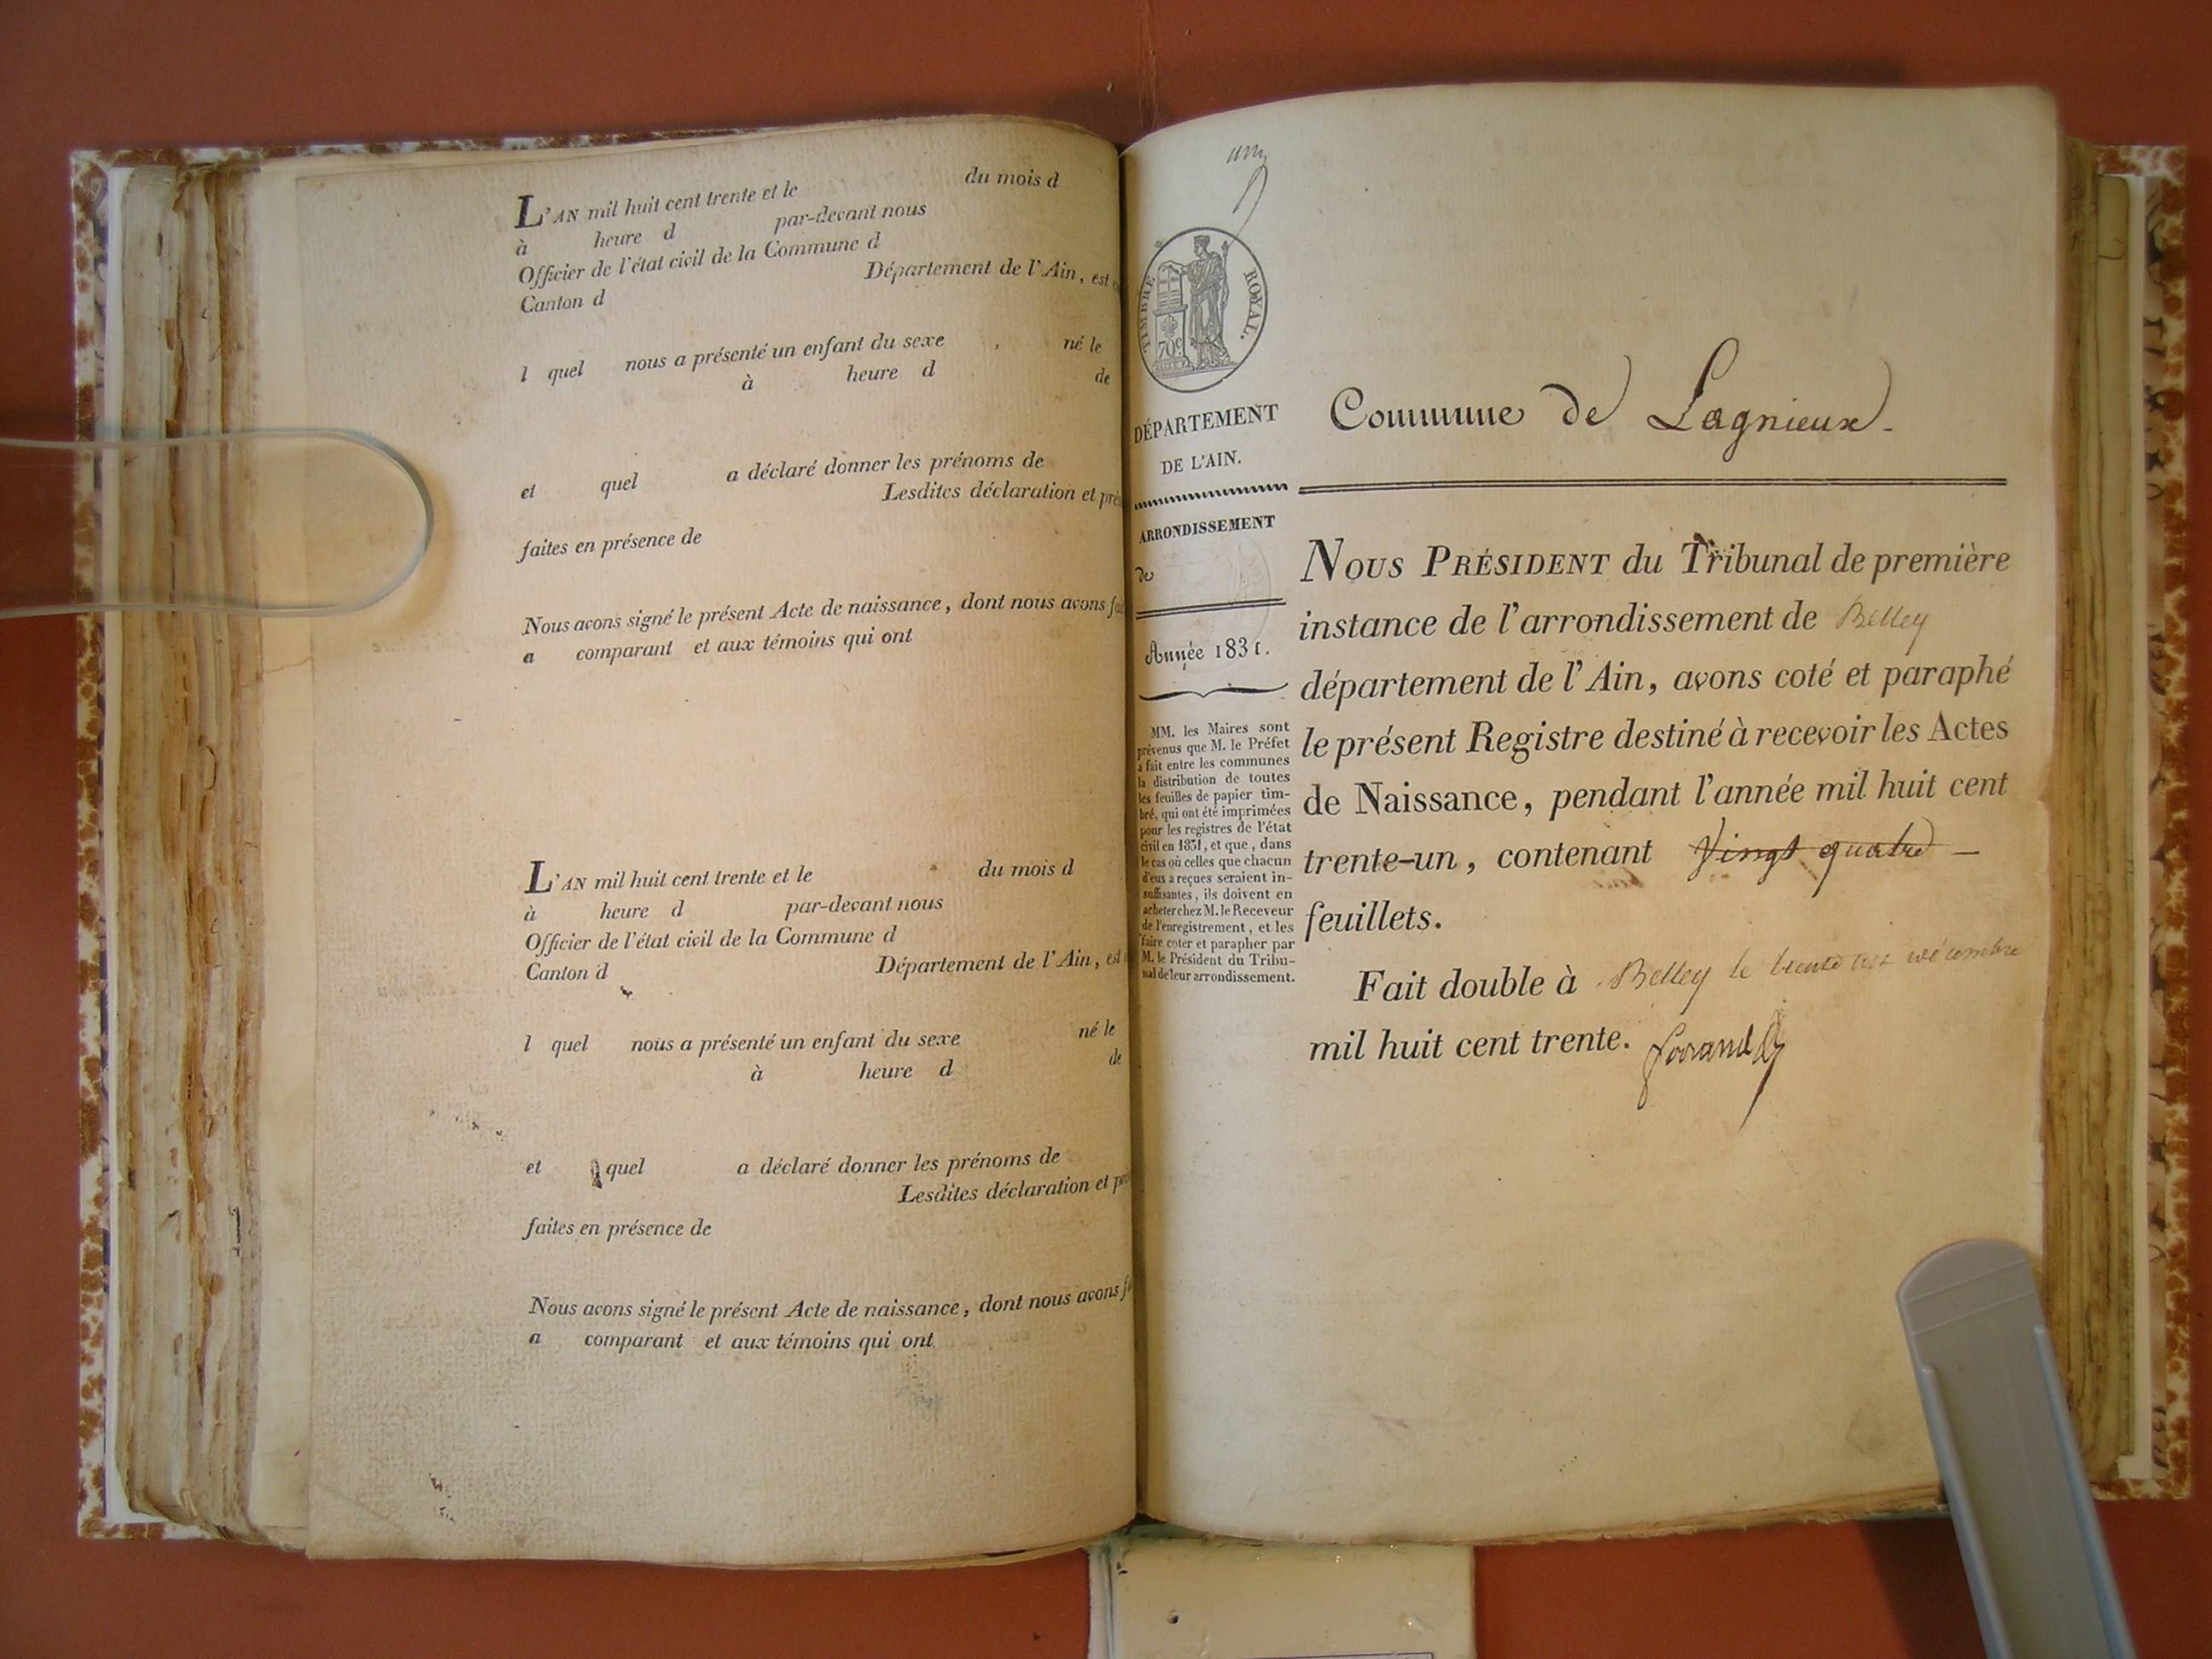 L'AN mil huit cent trente et le du mois d
à heure d par-devant nous
Officier de l'état civil de la Commune d
Canton d Département de l'Ain, est
l quel nous a présenté un enfant du sexe né le
à heure d de
et quel a déclaré donner les prénoms de
Lesdites déclaration et
faites en présence de
Nous avons signé le présent Acte de naissance, dont nous avons
a comparant et aux témoins qui ont
L'AN mil huit cent trente et le du mois d
à heure d par-devant nous
Officier de l'état civil de la Commune d
Canton d Département de l'Ain, est
l quel nous a présenté un enfant du sexe né le
à heure d de
et quel a déclaré donner les prénoms de
Lesdites déclaration et
faites en présence de
Nous avons signé le présent Acte de naissance, dont nous avons
a comparant et aux témoins qui ont
TIMBRE ROYAL.
70c
DÉPARTEMENT
DE L'AIN.
ARRONDISSEMENT
de
Année 1831.
MM. les Maires sont
prévenus que M. le Préfet
a fait entre les communes
la distribution de toutes
les feuilles de papier tim-
bré, qui ont été imprimées
pour les registres de l'état
civil en 1831, et que, dans
le cas où celles que chacun
d'eux a reçues seraient in-
suffisantes, ils doivent en
acheter chez M. le Receveur
de l'enregistrement, et les
faire coter et parapher par
M. le Président du Tribu-
nal de leur arrondissement.
Commune de Lagnieux.
NOUS PRÉSIDENT du Tribunal de première
instance de l'arrondissement de Belley
département de l'Ain, avons coté et paraphé
le présent Registre destiné à recevoir les Actes
de Naissance, pendant l'année mil huit cent
trente-un, contenant Vingt quatre
feuillets.
Fait double à Belley le trente décembre
mil huit cent trente.